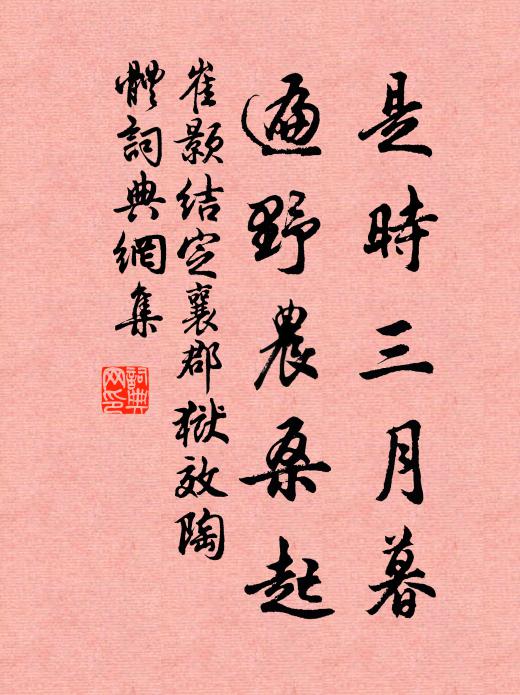 是時三月暮
遍野農桑起
崔顥結定襄郡獄效陶
體詞典網集
詞典網印